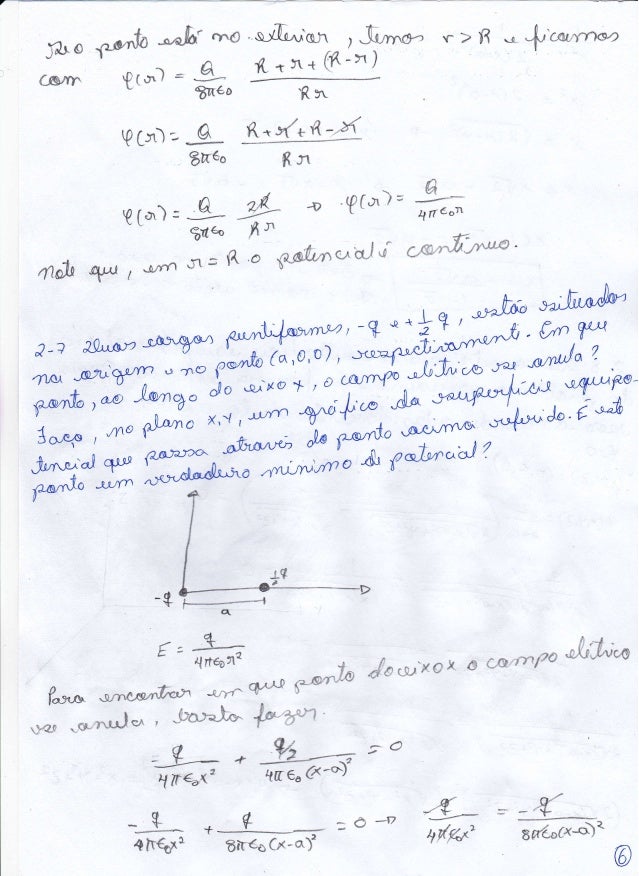 Se o ponto está no exterior, temos r > R e ficamos
com φ(r) = Q/8πε₀ (R + r + (R - r))/Rr
φ(r) = Q/8πε₀ (R + r + R - r)/Rr
φ(r) = Q/8πε₀ 2R/Rr → φ(r) = Q/4πε₀r
Note que, em r = R o potencial é contínuo.
2-7 Duas cargas puntiformes, -q e +1/2 q, estão situadas
na origem e no ponto (a,0,0), respectivamente. Em que
ponto, ao longo do eixo x, o campo elétrico se anula?
Faça, no plano x,y, um gráfico da superfície equipo-
tencial que passa através do ponto acima referido. É este
ponto um verdadeiro mínimo de potencial?
-q 1/2 q
a
E = q/4πε₀r²
Para encontar em que ponto do eixo x o campo elétrico
se anula, basta fazer.
= q/4πε₀x² + q/2/4πε₀(x-a)² = 0
- q/4πε₀x² + q/8πε₀(x-a)² = 0 → q/4πε₀x² = -q/8πε₀(x-a)²
6